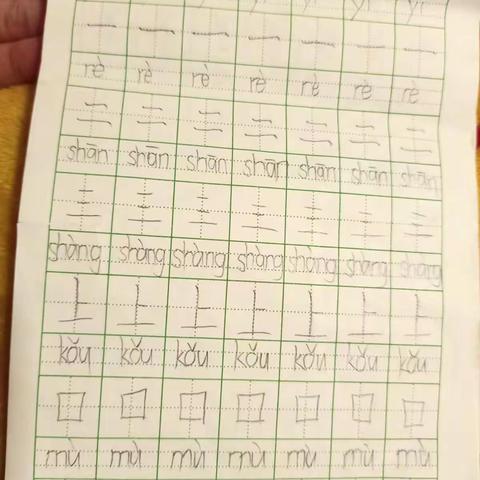 yī yī yī
一 一 一 一 一 一 一
rè rè rè rè rè rè rè
二 二 二 二 二 二 二
shān shān shān shān shān shān shān
三 三 三 三 三 三 三
shàng shàng shàng shàng shàng shàng shàng
上 上 上 上 上 上 上
kǒu kǒu kǒu kǒu kǒu kǒu kǒu
口 口 口 口 口 口 口
mù mù mù mù mù mù mù